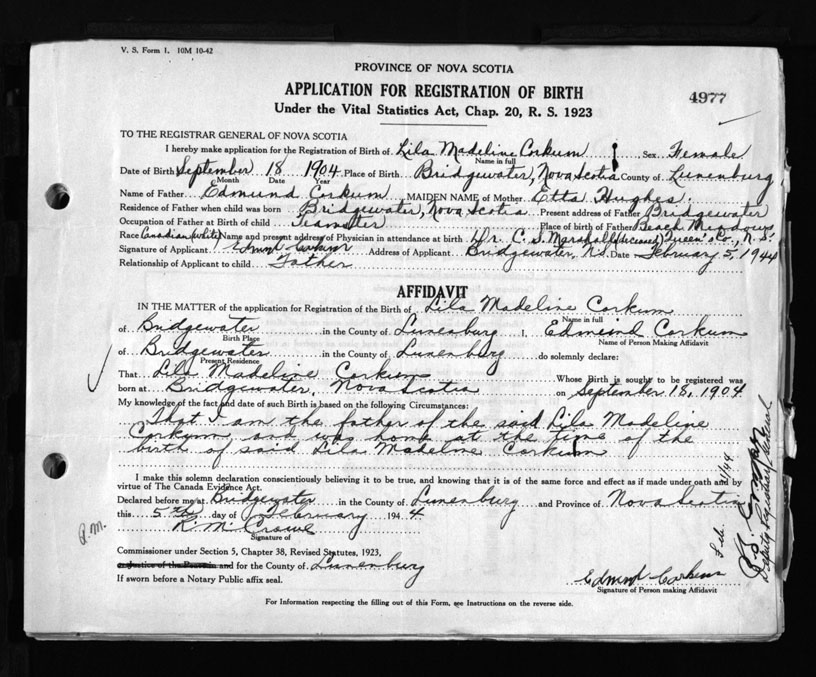 V. S. Form 1. 10M 10-42
PROVINCE OF NOVA SCOTIA
APPLICATION FOR REGISTRATION OF BIRTH
4977
Under the Vital Statistics Act, Chap. 20, R. S. 1923
TO THE REGISTRAR GENERAL OF NOVA SCOTIA
I hereby make application for the Registration of Birth of Lila Madeline Corkum Sex Female
Name in full
Date of Birth September 18 1904 Place of Birth Bridgewater, Nova Scotia County of Lunenburg
Month Date Year
Name of Father Edmund Corkum MAIDEN NAME of Mother Etta Hughes
Residence of Father when child was born Bridgewater, Nova Scotia Present address of Father Bridgewater
Occupation of Father at Birth of child Teamster Place of birth of Father Beach Meadows
Race Canadian (White) Name and present address of Physician in attendance at birth Dr. C. S. Marshall (deceased) Queen's Co., N.S.
Signature of Applicant Edmund Corkum Address of Applicant Bridgewater, N.S. Date February 5, 1944
Relationship of Applicant to child Father
AFFIDAVIT
IN THE MATTER of the application for Registration of the Birth of Lila Madeline Corkum
Name in full
of Bridgewater in the County of Lunenburg I, Edmund Corkum
Birth Place Name of Person Making Affidavit
of Bridgewater in the County of Lunenburg do solemnly declare:
Present Residence
That Lila Madeline Corkum Whose Birth is sought to be registered was
born at Bridgewater, Nova Scotia on September 18, 1904
My knowledge of the fact and date of such Birth is based on the following Circumstances:
That I am the father of the said Lila Madeline
Corkum and was home at the time of the
birth of said Lila Madeline Corkum
I make this solemn declaration conscientiously believing it to be true, and knowing that it is of the same force and effect as if made under oath and by
virtue of The Canada Evidence Act.
Declared before me at Bridgewater in the County of Lunenburg and Province of Nova Scotia
this 5th day of February 1944
R. M. Crowe
Signature of
P.M.
Commissioner under Section 5, Chapter 38, Revised Statutes, 1923,
and for the County of Lunenburg
If sworn before a Notary Public affix seal.
Edmund Corkum
Signature of Person making Affidavit
For Information respecting the filling out of this Form, see Instructions on the reverse side.
Deputy Registrar General